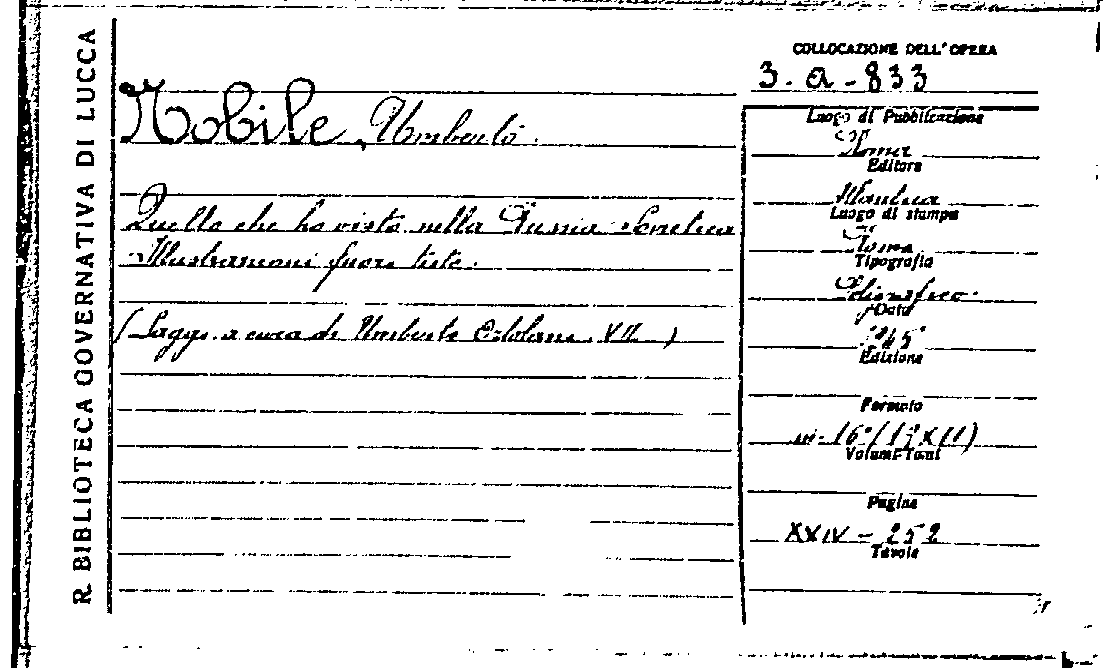 R. BIBLIOTECA GOVERNATIVA DI LUCCA
COLLOCAZIONE DELL'OPERA
3. a - 833
Nobile, Umberto.
Quello che ho visto nella Russia Sovietica
Illustrazioni fuori testo.
(Saggi a cura di Umberto VII)
Luogo di Pubblicazione
Roma
Editore
Atlantica
Luogo di stampa
Roma
Tipografia
Data
945
Edizione
Formato
in-16°
Volumi-Tomi
Pagine
XXIV - 252
Tavole